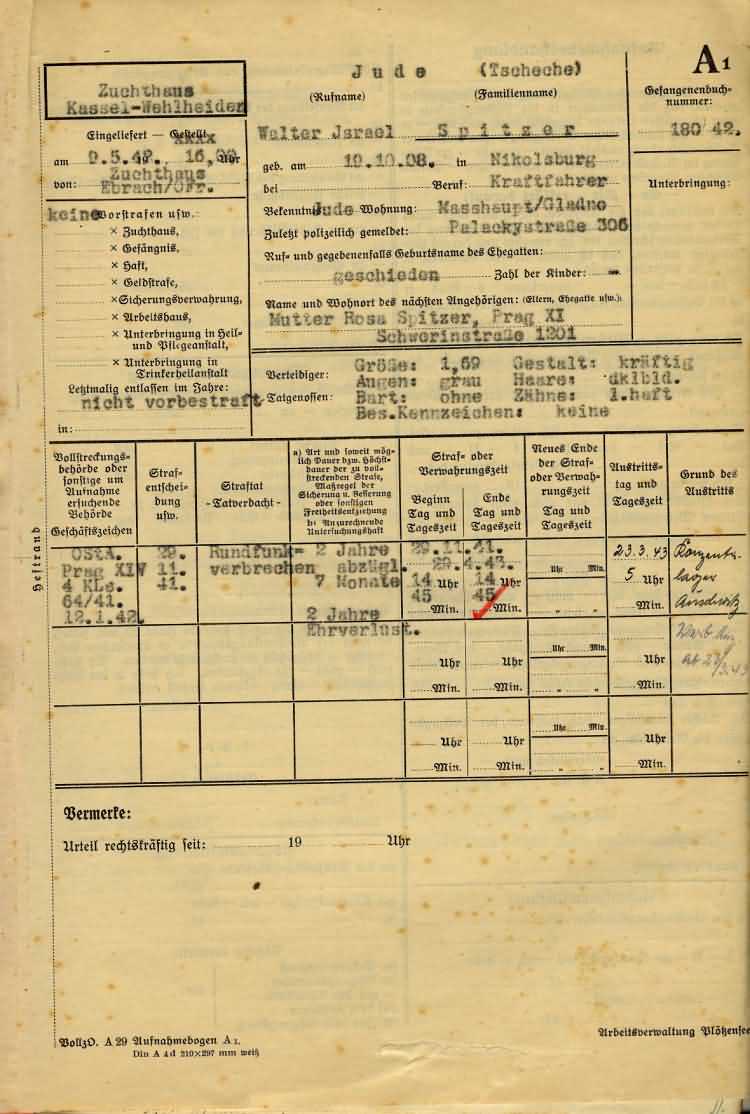 Jude (Tscheche)
A1
Zuchthaus
Kassel-Wehlheiden
(Rufname) (Familienname)
Gefangenenbuch-
nummer:
180 42.
Eingeliefert — Gestellt
xxxx
am 9.5.42. 16,00 Uhr
von: Zuchthaus
Ebrach/Ofr.
Walter Jsrael Spitzer
geb. am 19.10.08. in Nikolsburg
bei Beruf: Kraftfahrer
Bekenntnis Jude Wohnung: Masshaupt/Gladno
Zuletzt polizeilich gemeldet: Palackystraße 306
Unterbringung:
Ruf- und gegebenenfalls Geburtsname des Ehegatten:
geschieden Zahl der Kinder: -
Name und Wohnort des nächsten Angehörigen: (Eltern, Ehegatte usw.):
Mutter Rosa Spitzer, Prag XI
Schwerinstraße 1201
keine Vorstrafen usw.:
× Zuchthaus,
× Gefängnis,
× Haft,
× Geldstrafe,
× Sicherungsverwahrung,
× Arbeitshaus,
× Unterbringung in Heil-
und Pflegeanstalt,
× Unterbringung in
Trinkerheilanstalt
Letztmalig entlassen im Jahre:
nicht vorbestraft
in:
Verteidiger:
Tatgenossen:
Größe: 1,69 Gestalt: kräftig
Augen: grau Haare: dklbld.
Bart: ohne Zähne: l.haft
Bes.Kennzeichen: keine
Vollstreckungs-
behörde oder
sonstige um
Aufnahme
ersuchende
Behörde
Geschäftszeichen
Straf-
entschei-
dung
usw.
Straftat
- Tatverdacht -
a) Art und soweit mög-
lich Dauer bzw. Höchst-
dauer der zu voll-
streckenden Strafe,
Maßregel der
Sicherung u. Besserung
oder sonstigen
Freiheitsentziehung
b) Anzurechnende
Untersuchungshaft
Straf- oder
Verwahrungszeit
Beginn
Tag und
Tageszeit
Ende
Tag und
Tageszeit
Neues Ende
der Straf-
oder Verwah-
rungszeit
Tag und
Tageszeit
Austritts-
tag und
Tageszeit
Grund des
Austritts
Heftrand
OStA. 29. Rundfunk- 2 Jahre 29.11.41. 23.3.43 Konzentr.
Prag XIV 11. verbrechen abzügl. 29.4.43. Uhr Min.
4 KLs. 41. 7 Monate 14 Uhr 14 Uhr 5 Uhr lager
64/41. 45 Min. 45 Min. " " Min. Auschwitz
12.1.42. 2 Jahre
Ehrverlust.
Uhr Min.
Uhr Uhr Uhr
Min. Min. " " Min.
Uhr Min.
Uhr Uhr Uhr
Min. Min. " " Min.
Vermerke:
Urteil rechtskräftig seit: 19 Uhr
VollzO. A 29 Aufnahmebogen A 1.
Din A 4d 210×297 mm weiß
Arbeitsverwaltung Plötzensee